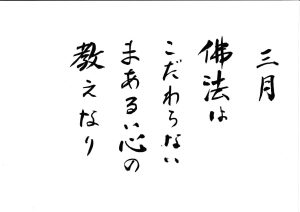 三月
佛法は
こだわらない
まあるい心の
教えなり